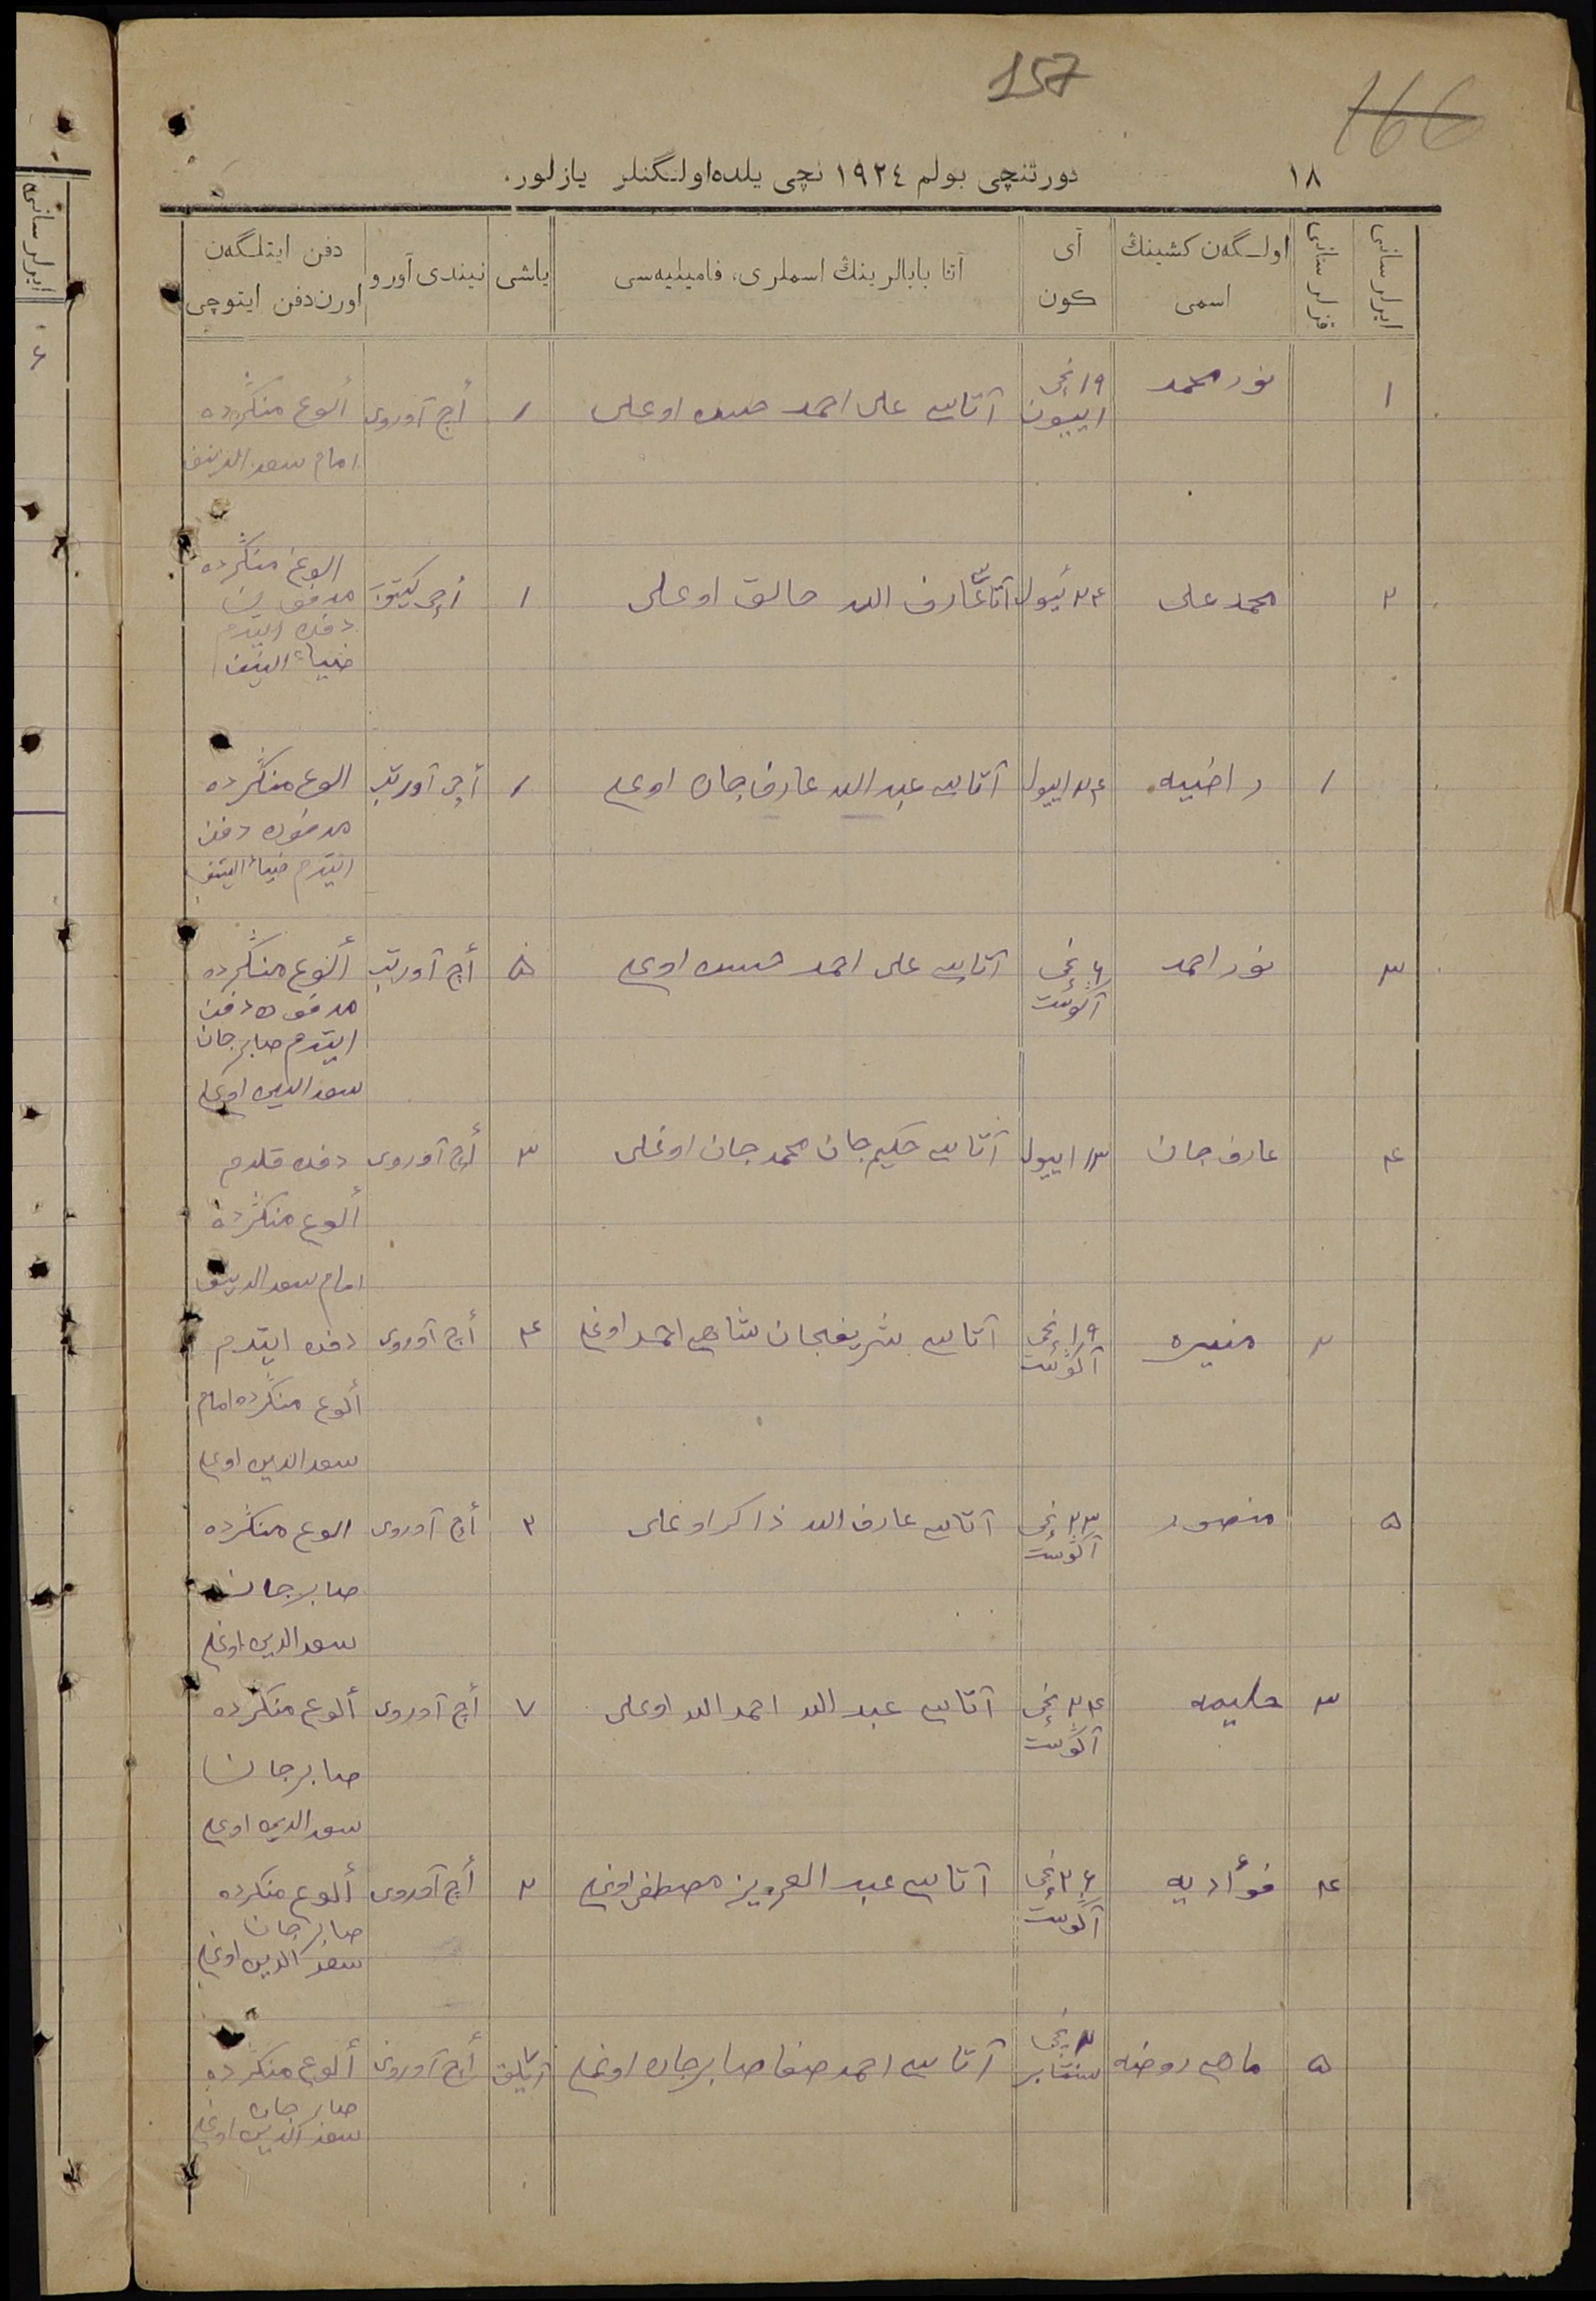 157
166
١٨
دورتنچی بولم ١٩٢٤ نچی یلده اولـگنلر یازلور.
ایرلر سانی
قزلر سانی
اولـگەن کشینڭ اسمی
آی کون
آتا بابالرینڭ اسملری، فامیلیەسی
یاشی
نیندی آورو
دفن ایتلـگەن اورن دفن ایتوچی
ایرلر سانی
۱ نور محمد ۱۹ نچی اییون آتاسی علی احمد حسن اوغلی ۱ أچ آوروی ألوغ منگرده
امام سعدالدینف
۲ محمد علی ۲۴ ئیول آتاسی عارف الله خالق اوغلی ۱ أچی کیتوب الوغ منگرده
مدفون
دفن ایتدم
ضیاءالدینف
۱ راضیه ۲۴ اییول آتاسی عبد الله عارف جان اوغلی ۱ أچی آورتب الوغ منگرده
مدفون دفن
ایتدم
۳ نور احمد ۶ نچی آگوست آتاسی علی احمد حسن اوغلی ۵ أچ آورتب ألوغ منگرده
مدفون دفن
ایتدم صابرجان
سعدالدین اوغلی
۴ عارف جان ۱۳ اییول آتاسی حکیم جان محمد جان اوغلی ۳ أچ آوروی دفن قلدم
ألوغ منگرده
امام سعدالدینف
۲ منیره ۱۹ نچی آگوست آتاسی شریفجان شاهی احمد اوغلی ۴ أچ آوروی دفن ایتدم
ألوغ منگرده امام
سعدالدین اوغلی
۵ منصور ۲۳ نچی آگوست آتاسی عارف الله ذاکر اوغلی ۲ أچ آوروی الوغ منگرده
صابرجان
سعدالدین اوغلی
۳ حلیمه ۲۴ نچی آگوست آتاسی عبد الله احمد الله اوغلی ۷ أچ آوروی ألوغ منگرده
صابرجان
سعدالدین اوغلی
۴ فوأدیه ۲۶ نچی آگوست آتاسی عبد العزیز مصطفی اوغلی ۲ أچ آوروی ألوغ منگرده
صابرجان
سعدالدین اوغلی
۵ ماهی روضه ۲ نچی سنتابر آتاسی احمد صفا صابرجان اوغلی ۷ آیلق أچ آوروی ألوغ منگرده
صابرجان
سعدالدین اوغلی